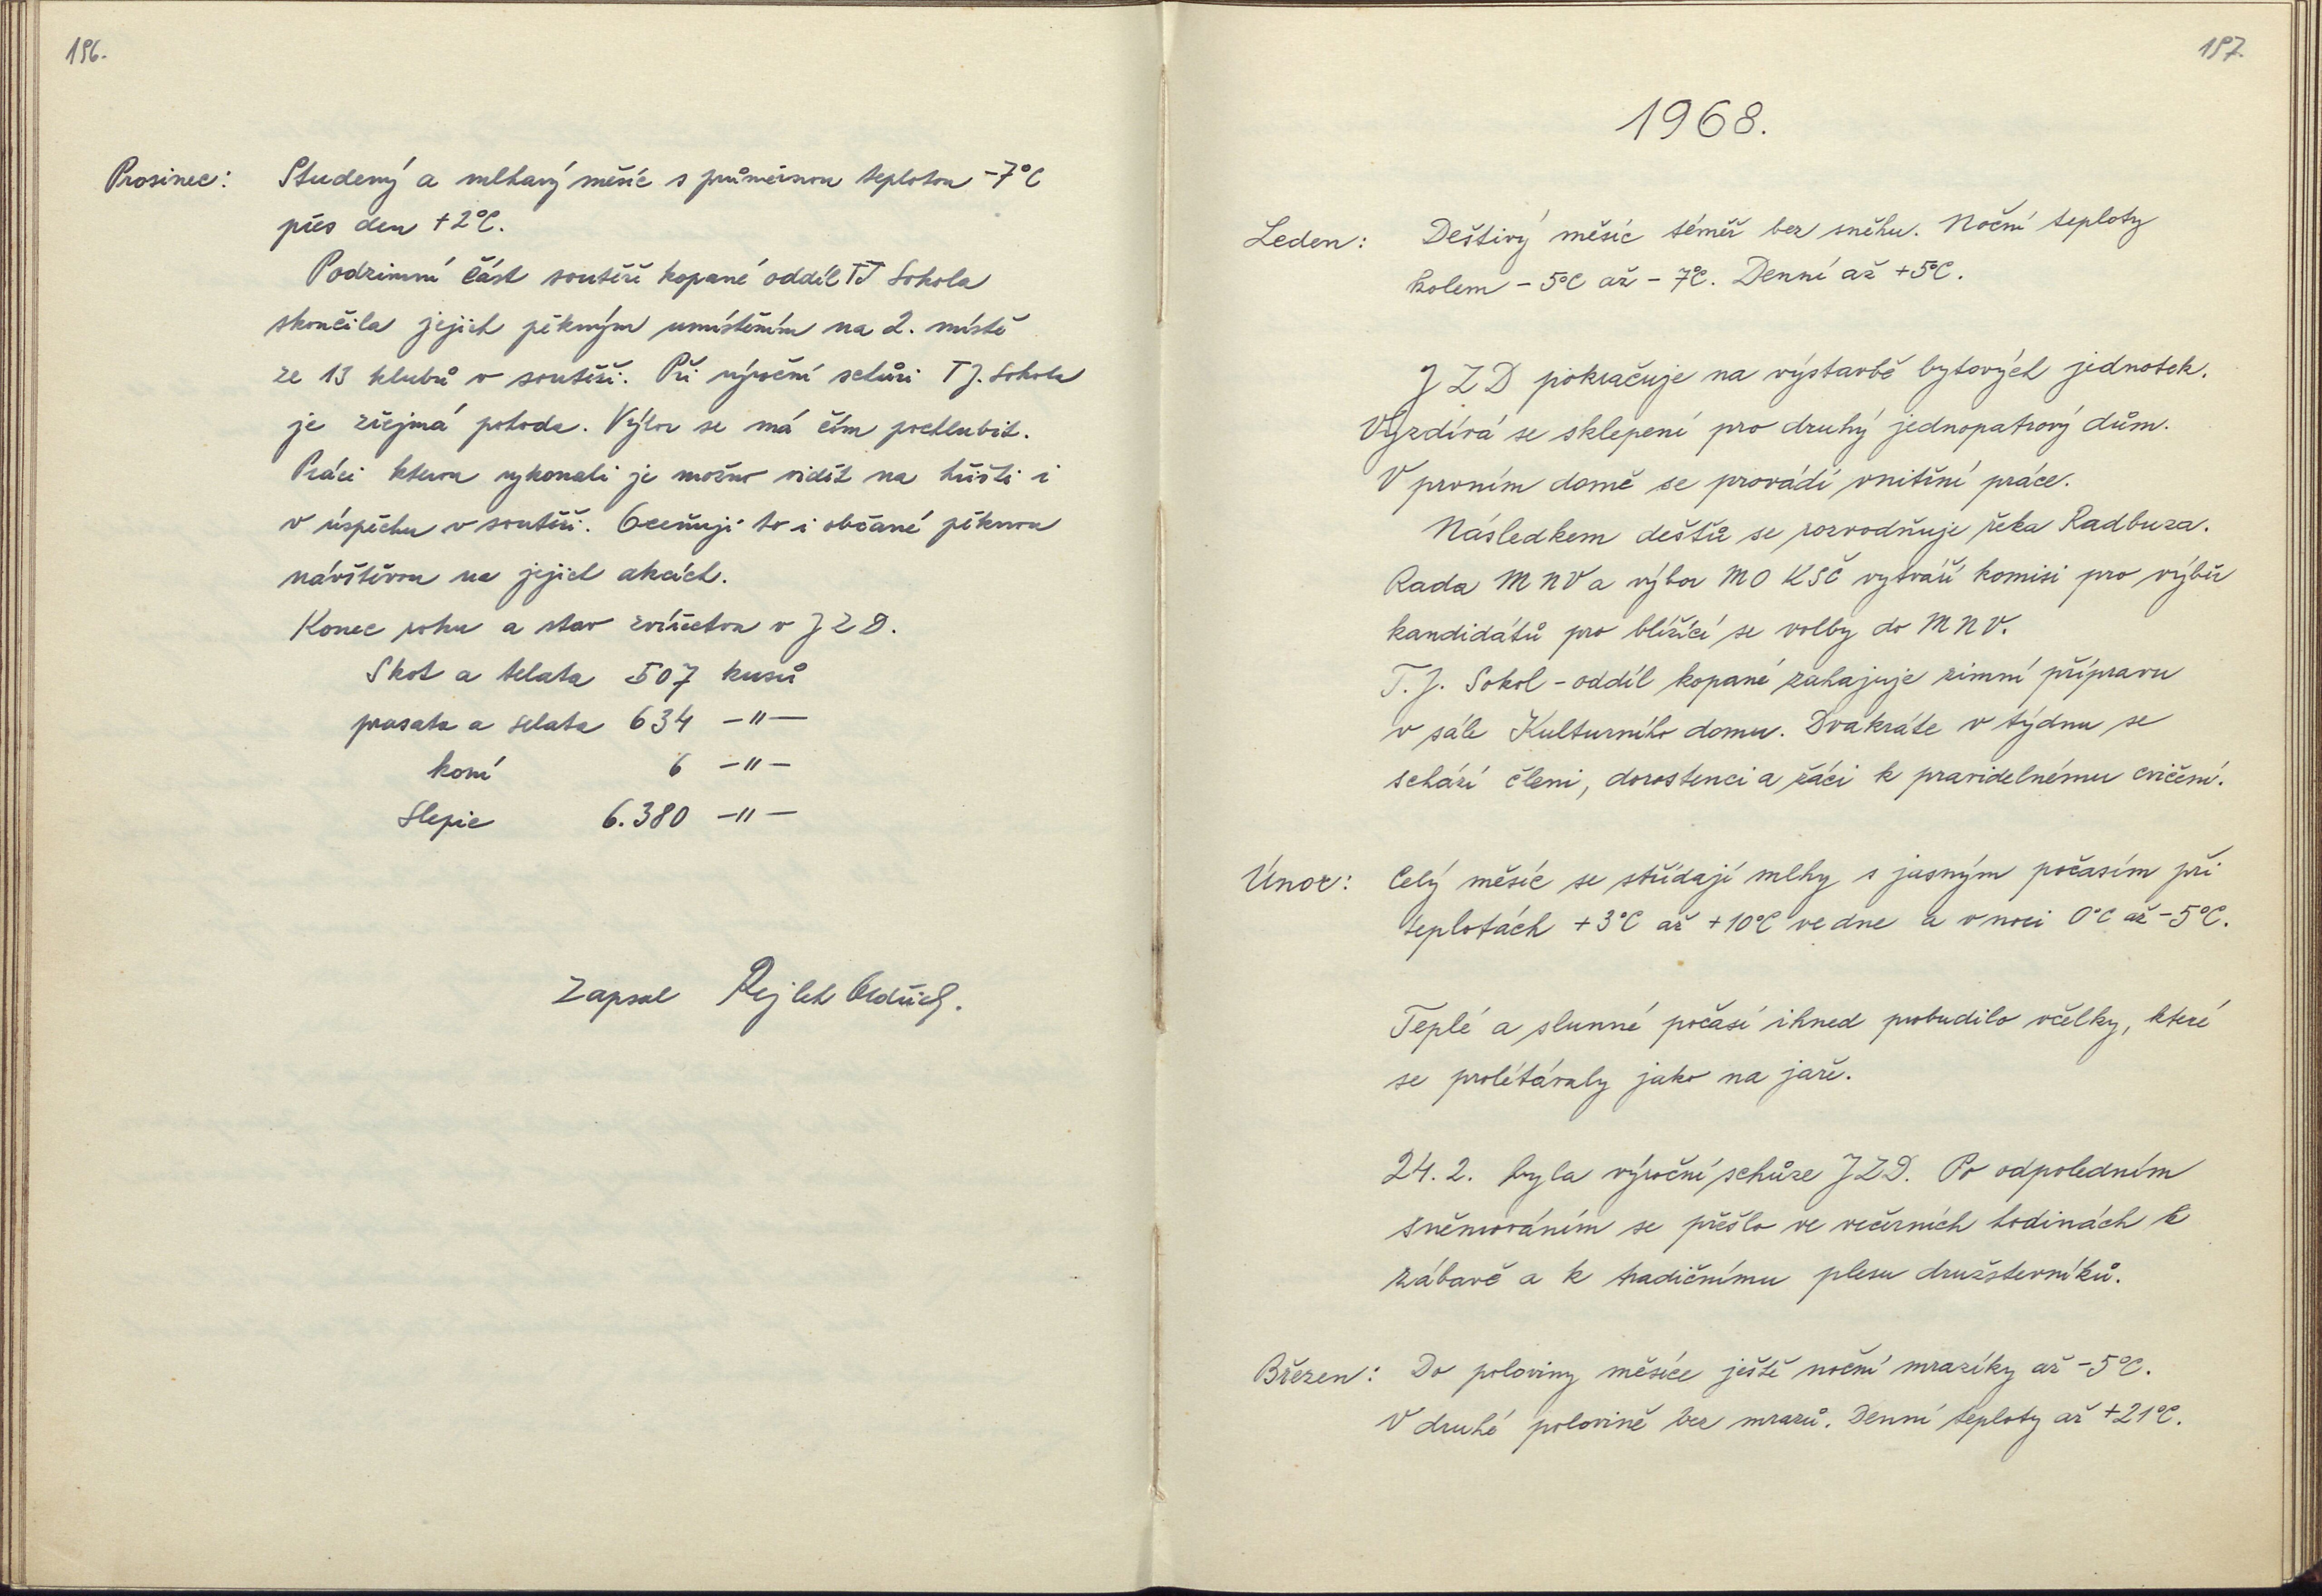 196.
Prosinec: Studený a mlhavý měsíc s průměrnou teplotou -7°C
přes den +2°C.
Podzimní část soutěží kopané oddíl TJ Sokola
skončila jejich pěkným umístěním na 2. místě
ze 13 klubů v soutěži. Při výroční schůzi TJ. Sokola
je zřejmá pohoda. Výbor se má čím pochlubit.
Práci kterou vykonali je možno vidět na hřišti i
v úspěchu v soutěži. Oceňují to i občané pěknou
návštěvou na jejich akcích.
Konec roku a stav zvířectva v JZD.
Skot a telata 507 kusů
prasata a selata 634 -"-
koní 6 -"-
Slepic 6.380 -"-
Zapsal Rejlek Oldřich.
197.
1968.
Leden: Deštivý měsíc téměř bez sněhu. Noční teploty
kolem - 5°C až - 7°C. Denní až +5°C.
JZD pokračuje na výstavbě bytových jednotek.
Vyzdívá se sklepení pro druhý jednopatrový dům.
V prvním domě se provádí vnitřní práce.
Následkem dešťů se rozvodňuje řeka Radbuza.
Rada MNV a výbor MO KSČ vytváří komisi pro výběr
kandidátů pro blížící se volby do MNV.
T.J. Sokol - oddíl kopané zahajuje zimní přípravu
v sále Kulturního domu. Dvakráte v týdnu se
schází členi, dorostenci a žáci k pravidelnému cvičení.
Únor: Celý měsíc se střídají mlhy s jasným počasím při
teplotách +3°C až +10°C ve dne a v noci 0°C až -5°C.
Teplé a slunné počasí ihned probudilo včelky, které
se prolétávaly jako na jaře.
24.2. byla výroční schůze JZD. Po odpoledním
sněmováním se přešlo ve večerních hodinách k
zábavě a k tradičnímu plesu družsterníků.
Březen: Do poloviny měsíce ještě noční mrazíky až -5°C.
V druhé polovině bez mrazů. Denní teploty až +21°C.